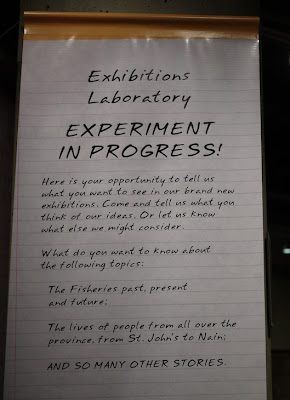 Exhibitions
Laboratory
EXPERIMENT
IN PROGRESS!
Here is your opportunity to tell us
what you want to see in our brand new
exhibitions. Come and tell us what you
think of our ideas. Or let us know
what else we might consider.
What do you want to know about
the following topics:
The Fisheries past, present
and future;
The lives of people from all over the
province, from St. John's to Nain;
AND SO MANY OTHER STORIES.